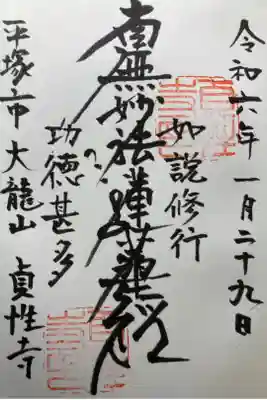 令和六年一月二十九日
如説修行
南無妙法蓮華経
功徳甚多
平塚市大龍山 貞性寺